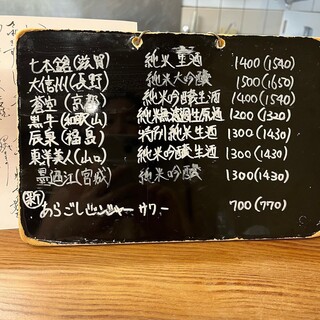 七本鎗(滋賀) 純米生酒 1400(1540)
大信州(長野) 純米大吟醸 1500(1650)
蒼空(京都) 純米吟醸生酒 1400(1540)
黒牛(和歌山) 純米無濾過生原酒 1200(1320)
辰泉(福島) 特別純米生酒 1300(1430)
東洋美人(山口) 純米吟醸生酒 1300(1430)
墨廼江(宮城) 純米吟醸 1300(1430)
新 あらごしジンジャーサワー 700(770)